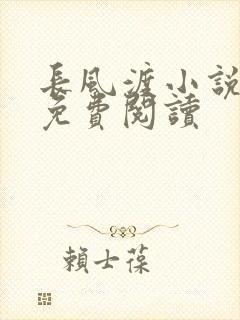 長風渡小説
免費閱讀
賴士葆